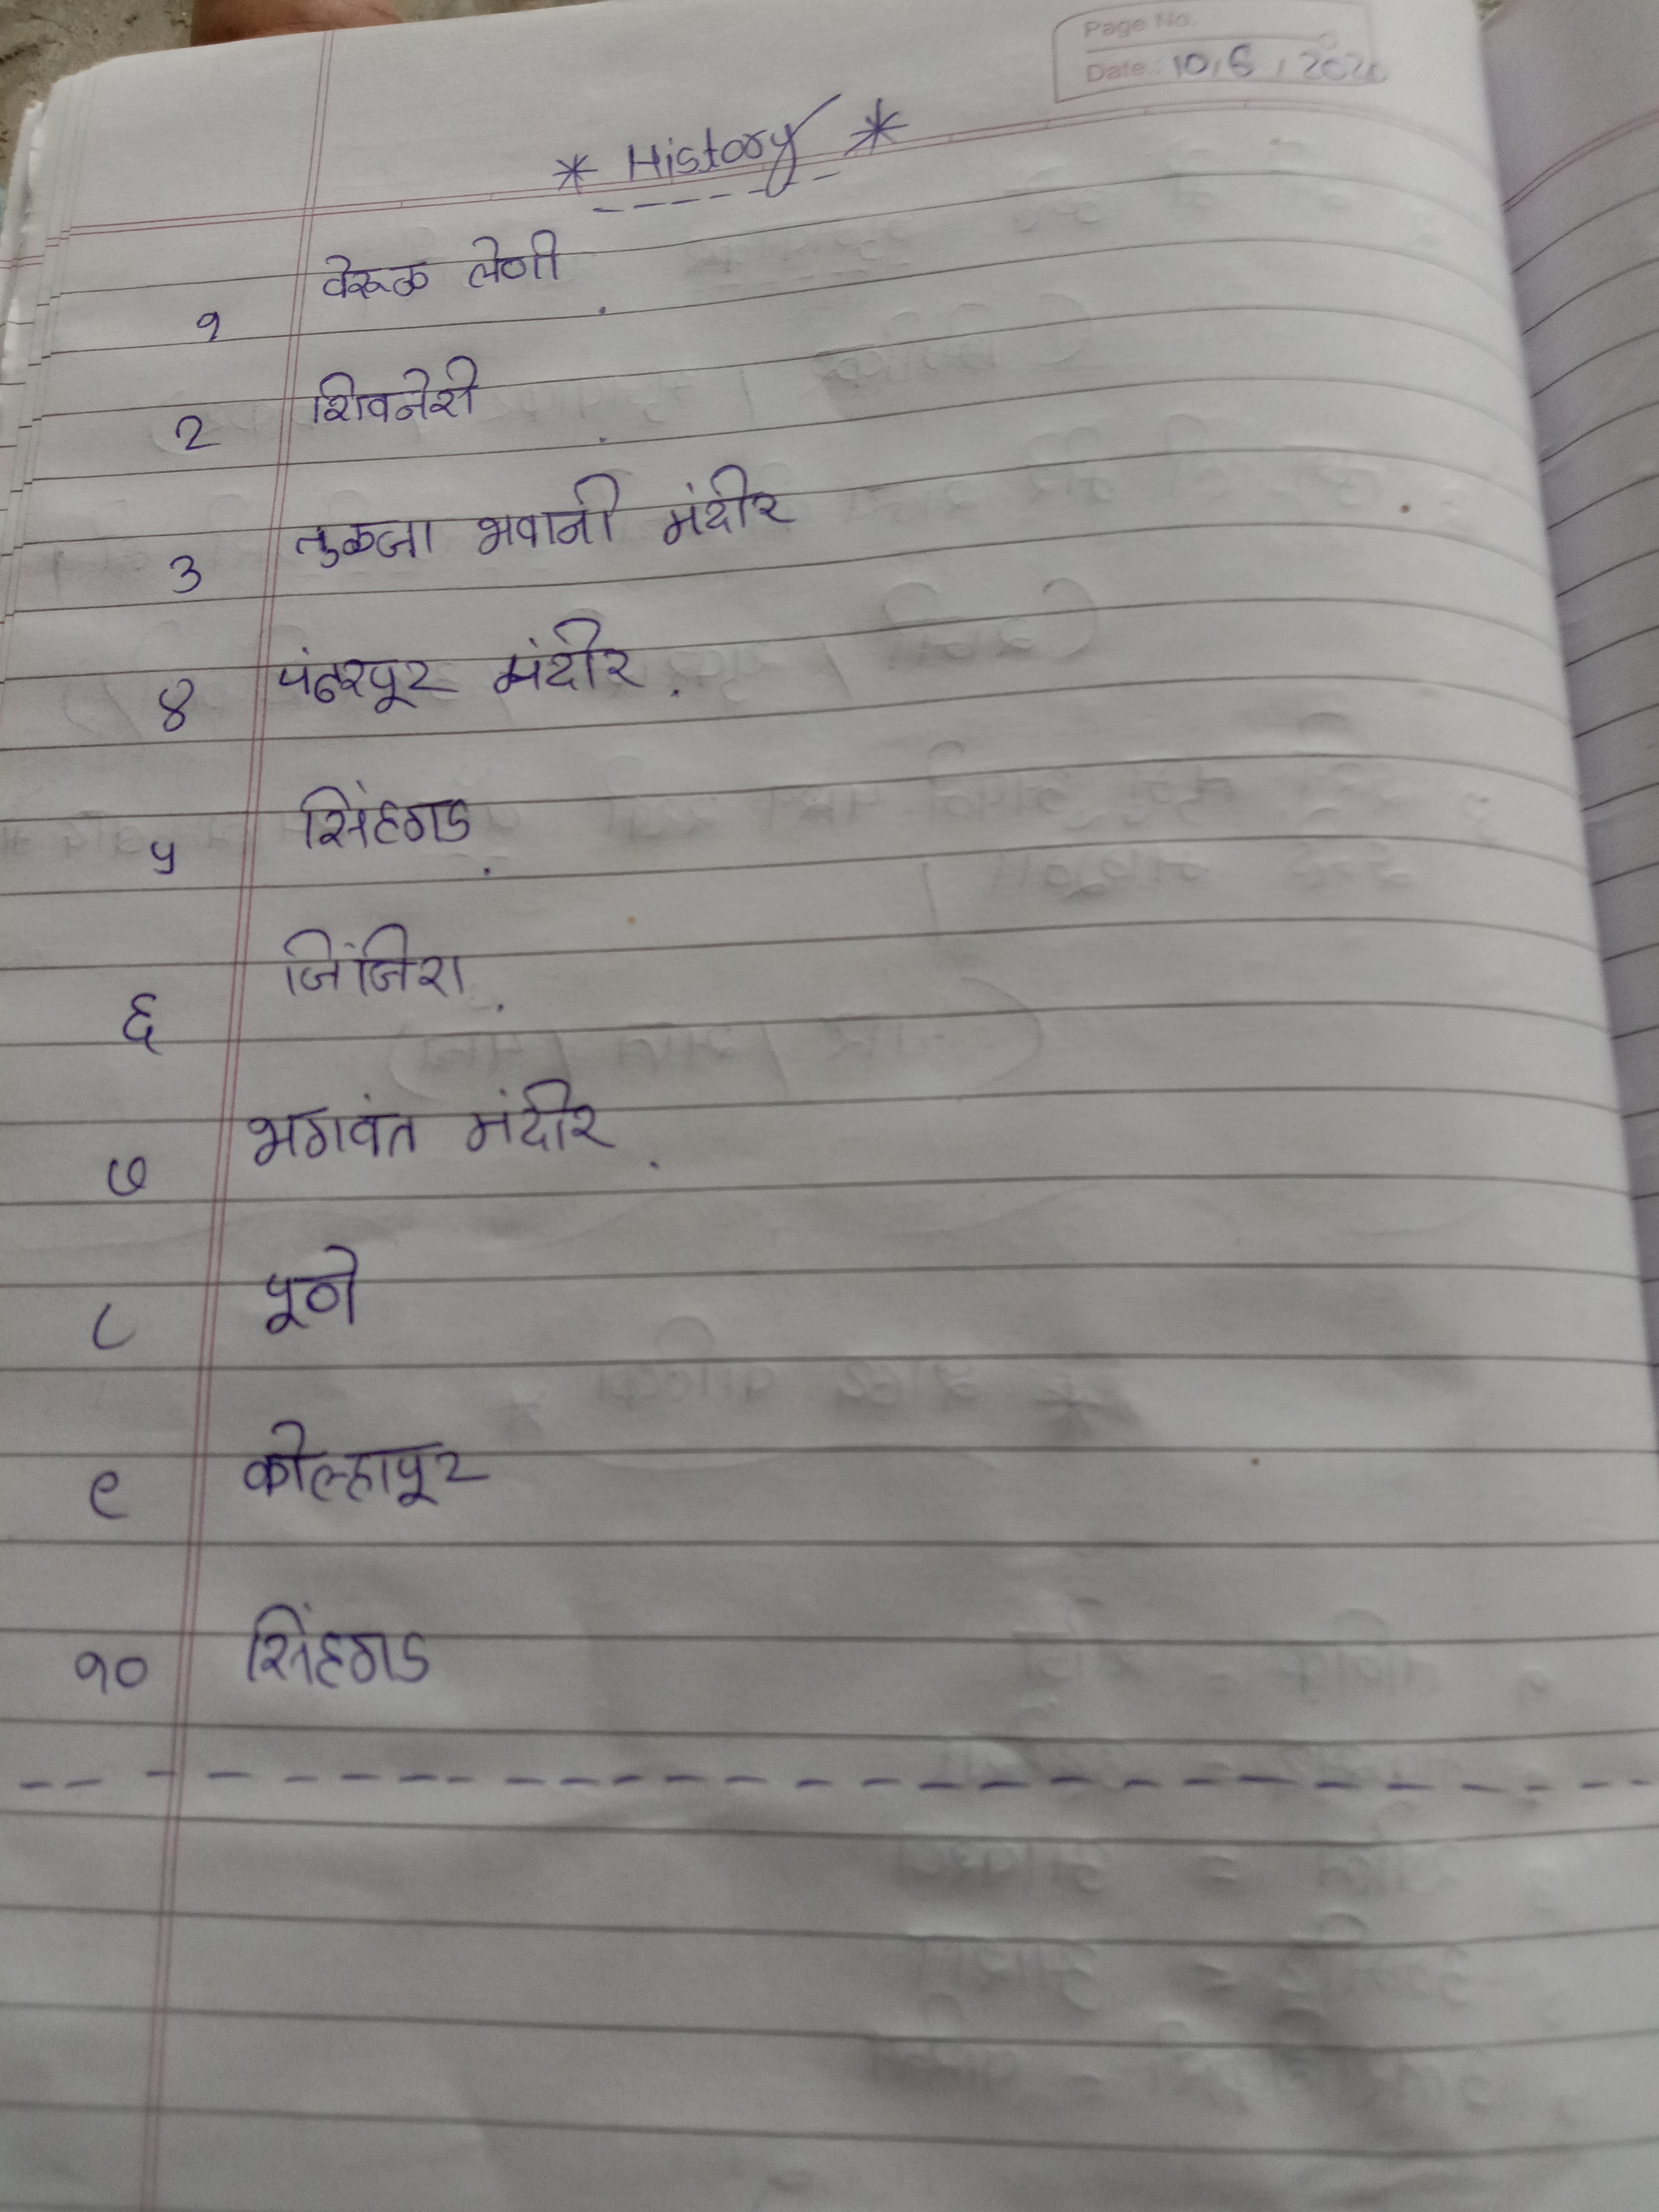 Page No.
Date.: 10,6,202
* History *
१ वेरूळ लेणी
2 शिवनेरी
3 तुळजा भवानी मंदीर
४ पंढरपूर मंदीर.
५ सिंहगड.
६ जिंजिरा.
७ भगवंत मंदीर.
८ पूणे
९ कोल्हापूर
१० सिंहगड